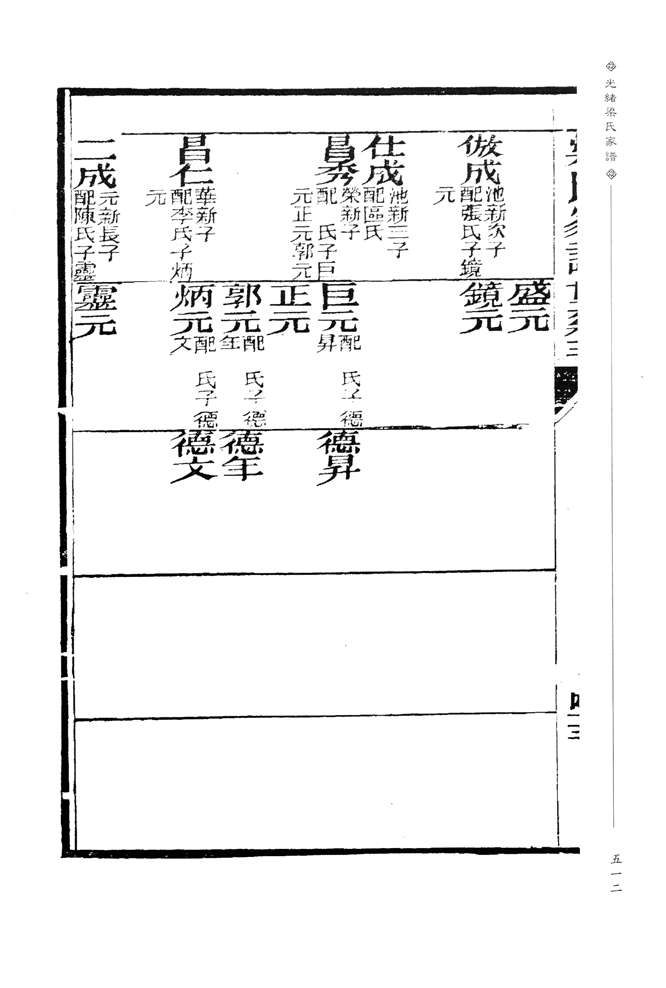 光緒梁氏家譜
五一二
倣成
池新次子
配張氏子鏡
元
仕成
池新三子
配區氏
昌秀
榮新子
配 氏子巨
元正元郭元
昌仁
華新子
配李氏子炳
元
二成
元新長子
配陳氏子靈
盛元
鏡元
巨元
配 氏子德
昇
正元
郭元
配 氏子德
年
炳元
配 氏子德
文
靈元
德昇
德年
德文